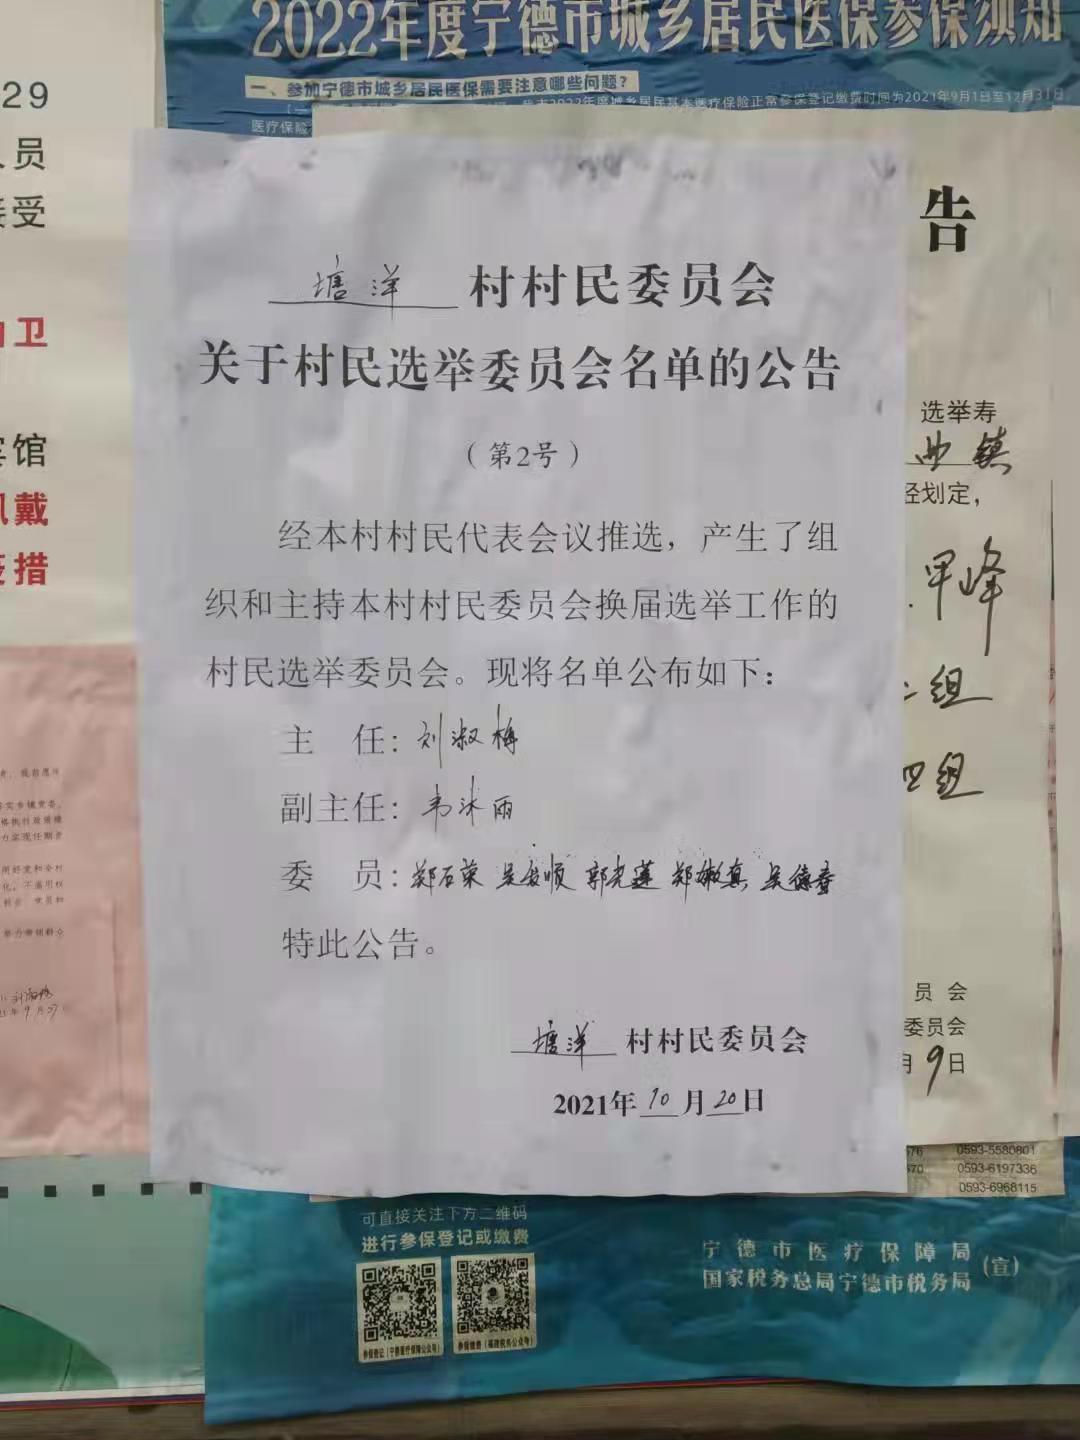 2022年度宁德市城乡居民医保参保须知
一、参加宁德市城乡居民医保需要注意哪些问题？
医疗保险
29
人员
接受
卫
宾馆
戴
措
告
塘洋村村民委员会
关于村民选举委员会名单的公告
（第2号）
经本村村民代表会议推选，产生了组
织和主持本村村民委员会换届选举工作的
村民选举委员会。现将名单公布如下：
主 任：刘淑梅
副主任：韦沐丽
委 员：郑石荣 吴发顺 郭光莲 郑嫩真 吴德春
特此公告。
塘洋村村民委员会
2021年10月20日
选举寿
曲镇
经划定，
甲峰
二组
四组
员会
委员会
月9日
0593-5580801
0593-6197336
0593-6968115
可直接关注下方二维码
进行参保登记或缴费
参保登记（宁德医疗保障公众号）
参保缴费（福建税务公众号）
宁德市医疗保障局
国家税务总局宁德市税务局
（宣）